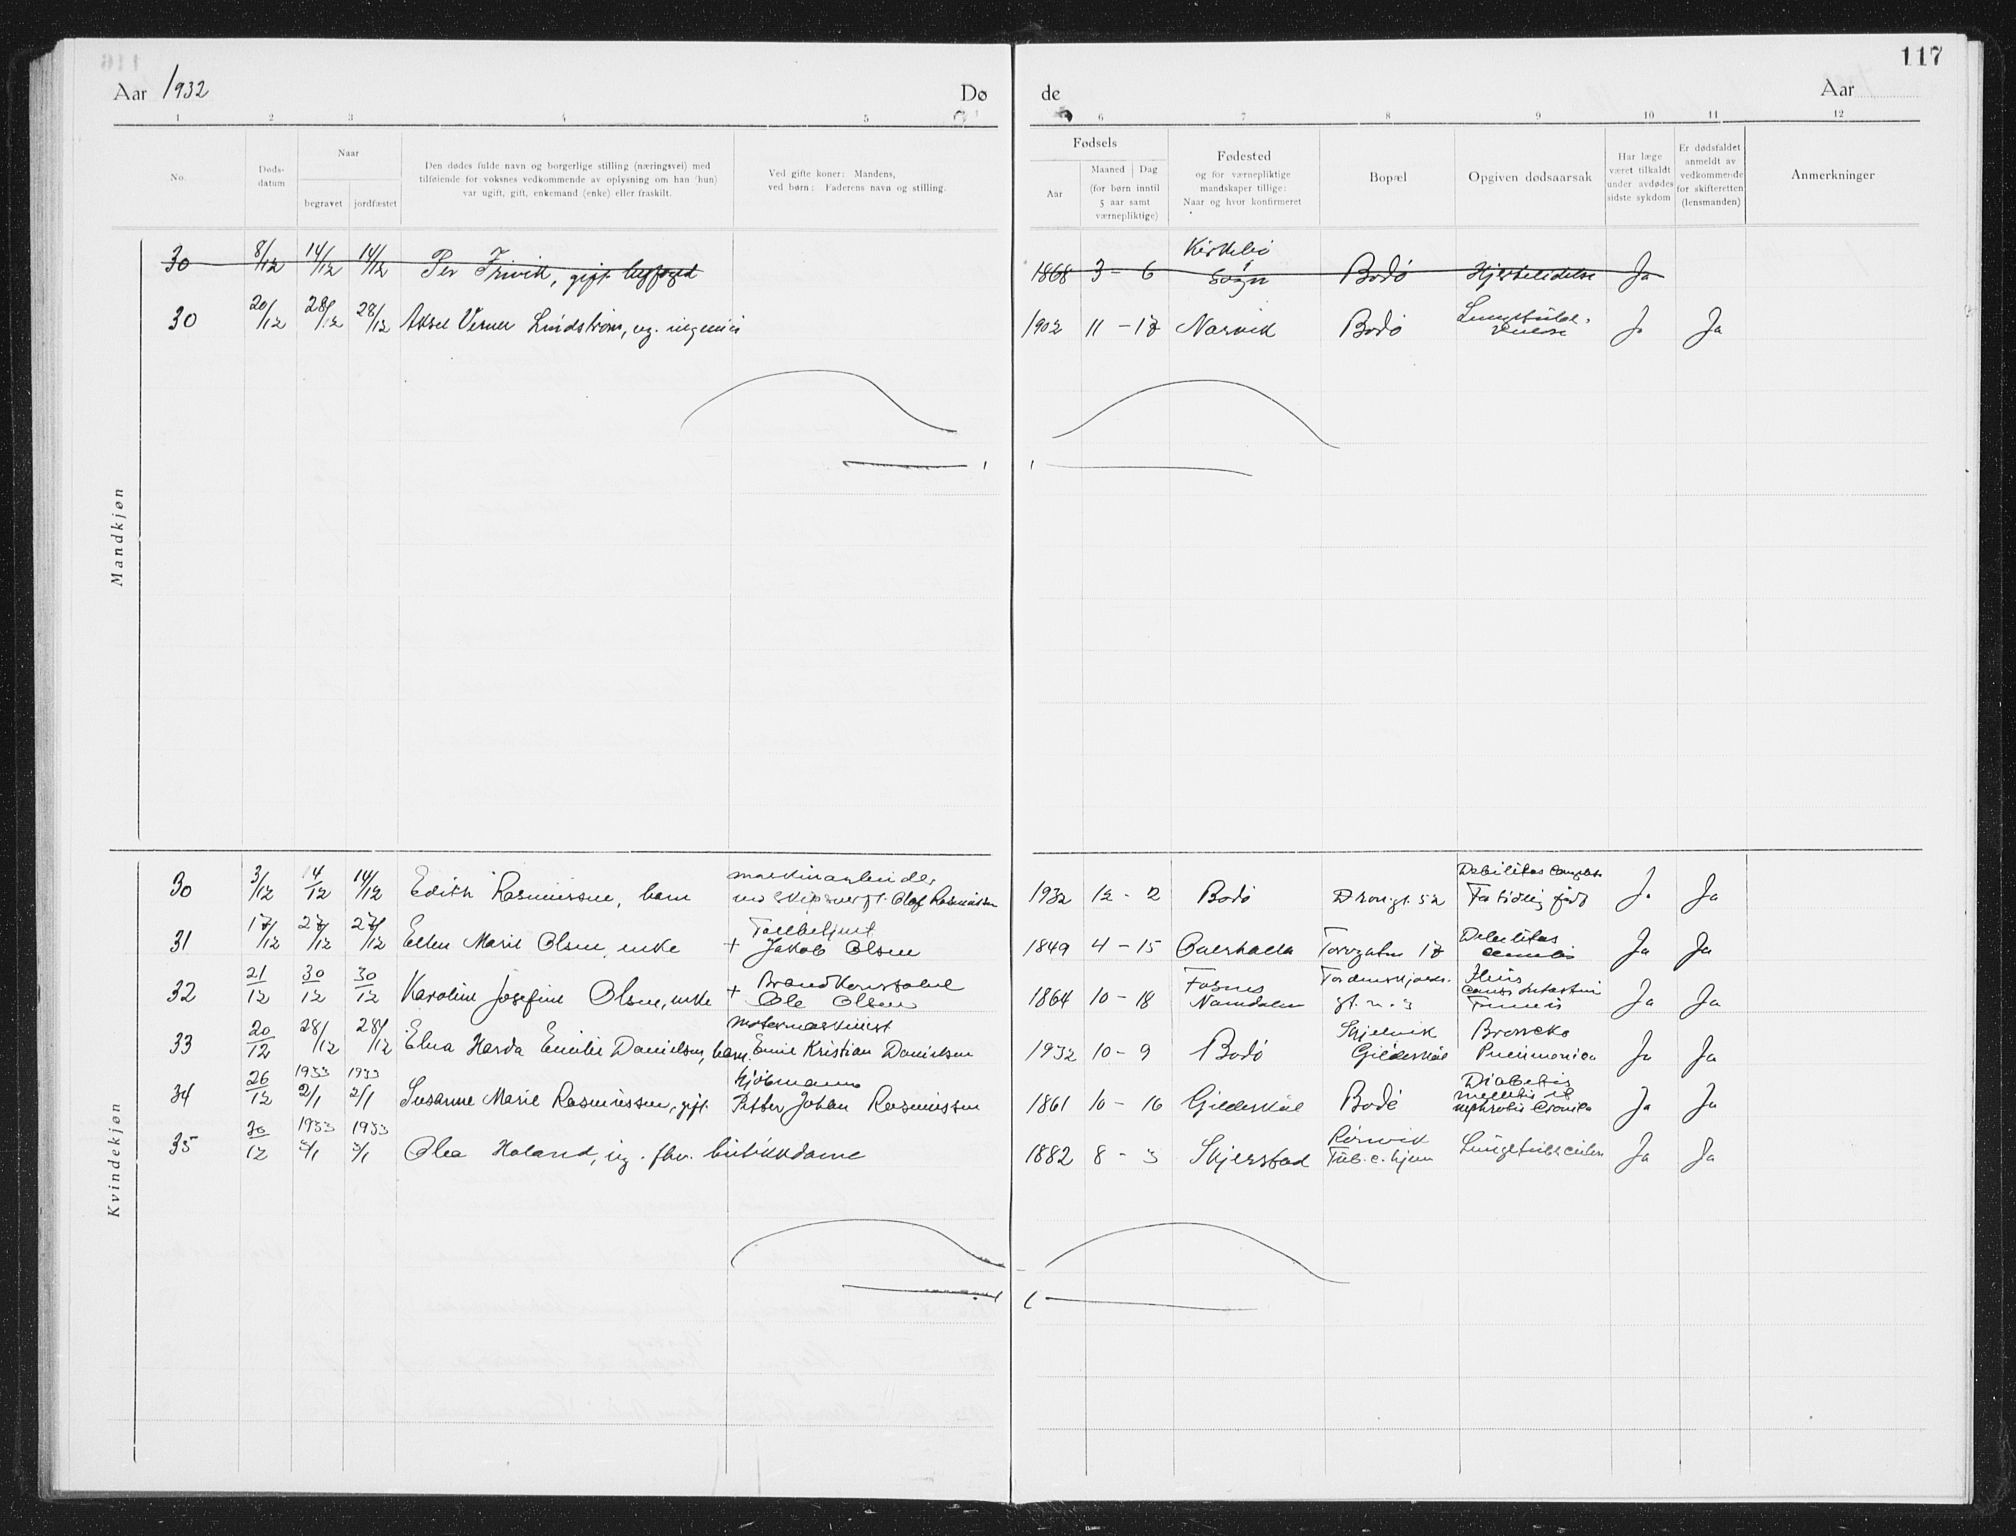 117
Aar 1932 Dø de Aar
1 2 3 4 5 6 7 8 9 10 11 12
No.
Døds-
datum
Naar
begravet jordfæstet
Den dødes fulde navn og borgerlige stilling (næringsvei) med
tilføiende for voksnes vedkommende av oplysning om han (hun)
var ugift, gift, enkemand (enke) eller fraskilt.
Ved gifte koner: Mandens,
ved børn: Faderens navn og stilling.
Fødsels
Aar
Maaned Dag
(for børn inntil
5 aar samt
værnepliktige)
Fødested
og for værnepliktige
mandskaper tillige:
Naar og hvor konfirmeret
Bopæl
Opgiven dødsaarsak
Har læge
været tilkaldt
under avdødes
sidste sykdom
Er dødsfaldet
anmeldt av
vedkommende
for skifteretten
(lensmanden)
Anmerkninger
Mandkjøn
Kirkebø
30 8/12 14/12 14/12 Per Trivik, gift byfoged 1868 3 - 6 Sogn Bodø Hjertelidelse Ja
30 20/12 28/12 28/12 Aksel Verner Lindstrøm, ug. ingeniør 1902 11 - 17 Narvik Bodø Ja Ja
Kvindekjøn
maskinarbeider
30 3/12 14/12 14/12 Edith Rasmussen, barn Olaf Rasmussen 1932 12 - 2 Bodø Dron.gt. 52 For tidlig født Ja Ja
Tollbetjent
31 17/12 27/12 27/12 Ellen Marie Olsen, enke + Jakob Olsen 1849 4 - 15 Overhalla Torvgaten 17 Debilitas senilis Ja Ja
Brandkonstabel
32 21/12 30/12 30/12 Karoline Josefine Olsen, enke + Ole Olsen 1864 10 - 18 Fosnes Namdalen Tordenskjolds gt. n. 3 Ileus Ja Ja
Motormaskinist
33 20/12 28/12 28/12 Elna Harda Emilie Danielsen, barn. Emil Kristian Danielsen 1932 10 - 9 Bodø Skjelvik Gildeskål Broncko Pneumonica Ja Ja
1933 1933 Kjøbmann
34 26/12 2/1 2/1 Susanne Marie Rasmussen, gift. Petter Johan Rasmussen 1861 10 - 16 Gildeskål Bodø Diabetis mellitis nephrolis Cronica Ja Ja
1933 1933
35 30/12 5/1 5/1 Olea Høland, ug. fhv. butikkdame 1882 8 - 3 Skjerstad Rønvik Tub.c.hjem Ja Ja